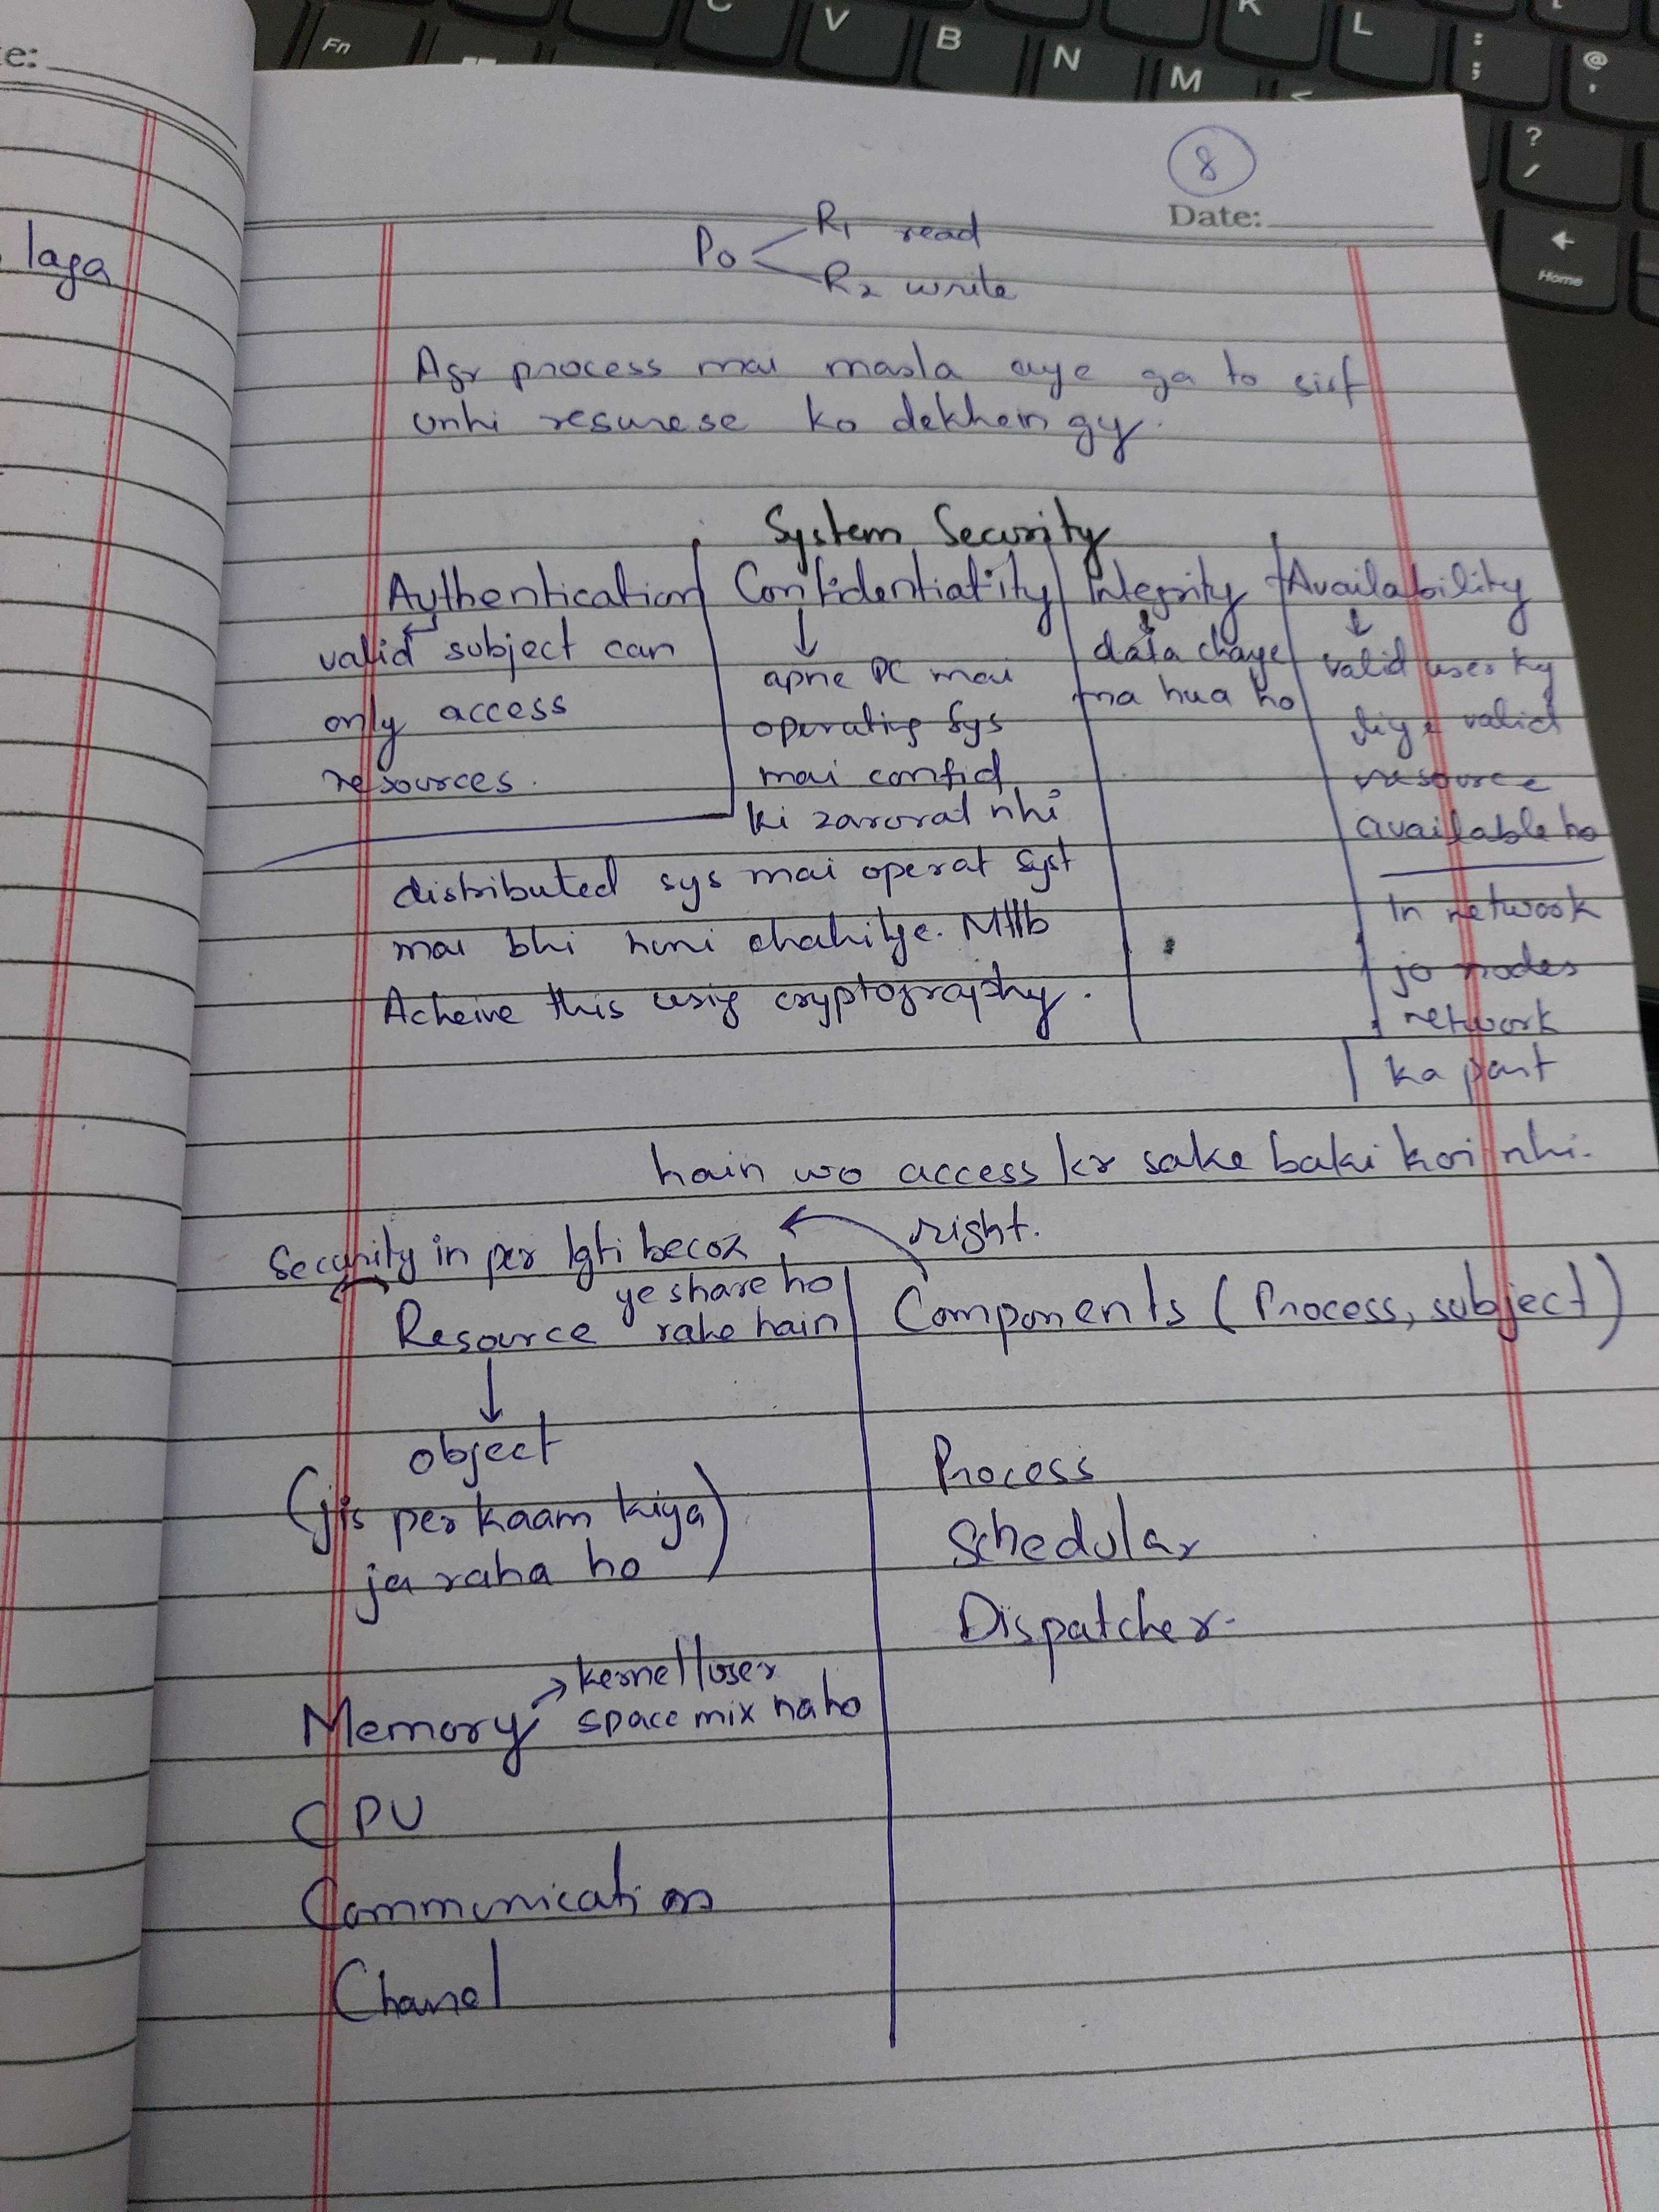 e:
laga
8
Date:
Po R1 read
R2 write
Agr process mai masla aye ga to sirf
unhi resurese ko dekhein gy.
System Security
Authentication
valid subject can
only access
resources.
Confidentiality
apne PC mai
operating sys
mai confid
ki zarorat nhi
distributed sys mai operat syst
mai bhi honi chahiye. Mtlb
Acheive this using cryptography.
Integrity
data change
na hua ho
Availability
valid user ky
liye valid
resource
available ho
In network
jo nodes
network
ka part
hain wo access kr sake baki koi nhi.
right.
Security in per lgti becoz
ye share ho
rahe hain
Resource
object
(jis per kaam kiya
ja raha ho)
Memory kernel/user
space mix na ho
CPU
Communication
Chanel
Components (Process, subject)
Process
Schedular
Dispatcher.
Fn
C
V
B
N
M
<
K
L
:
;
@
'
?
/
Home